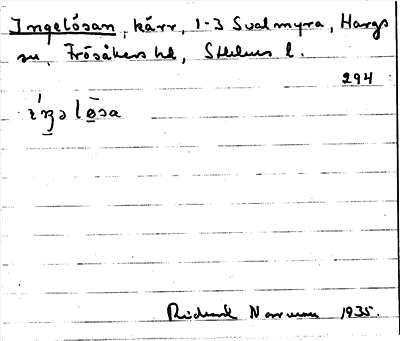 Ingelösan, kärr, 1-3 Svalmyra, Hargs
sn, Frösåkers hd, Sthlms l.
294
ɪ́ŋəlø̄sa
Richard Norrman 1935.